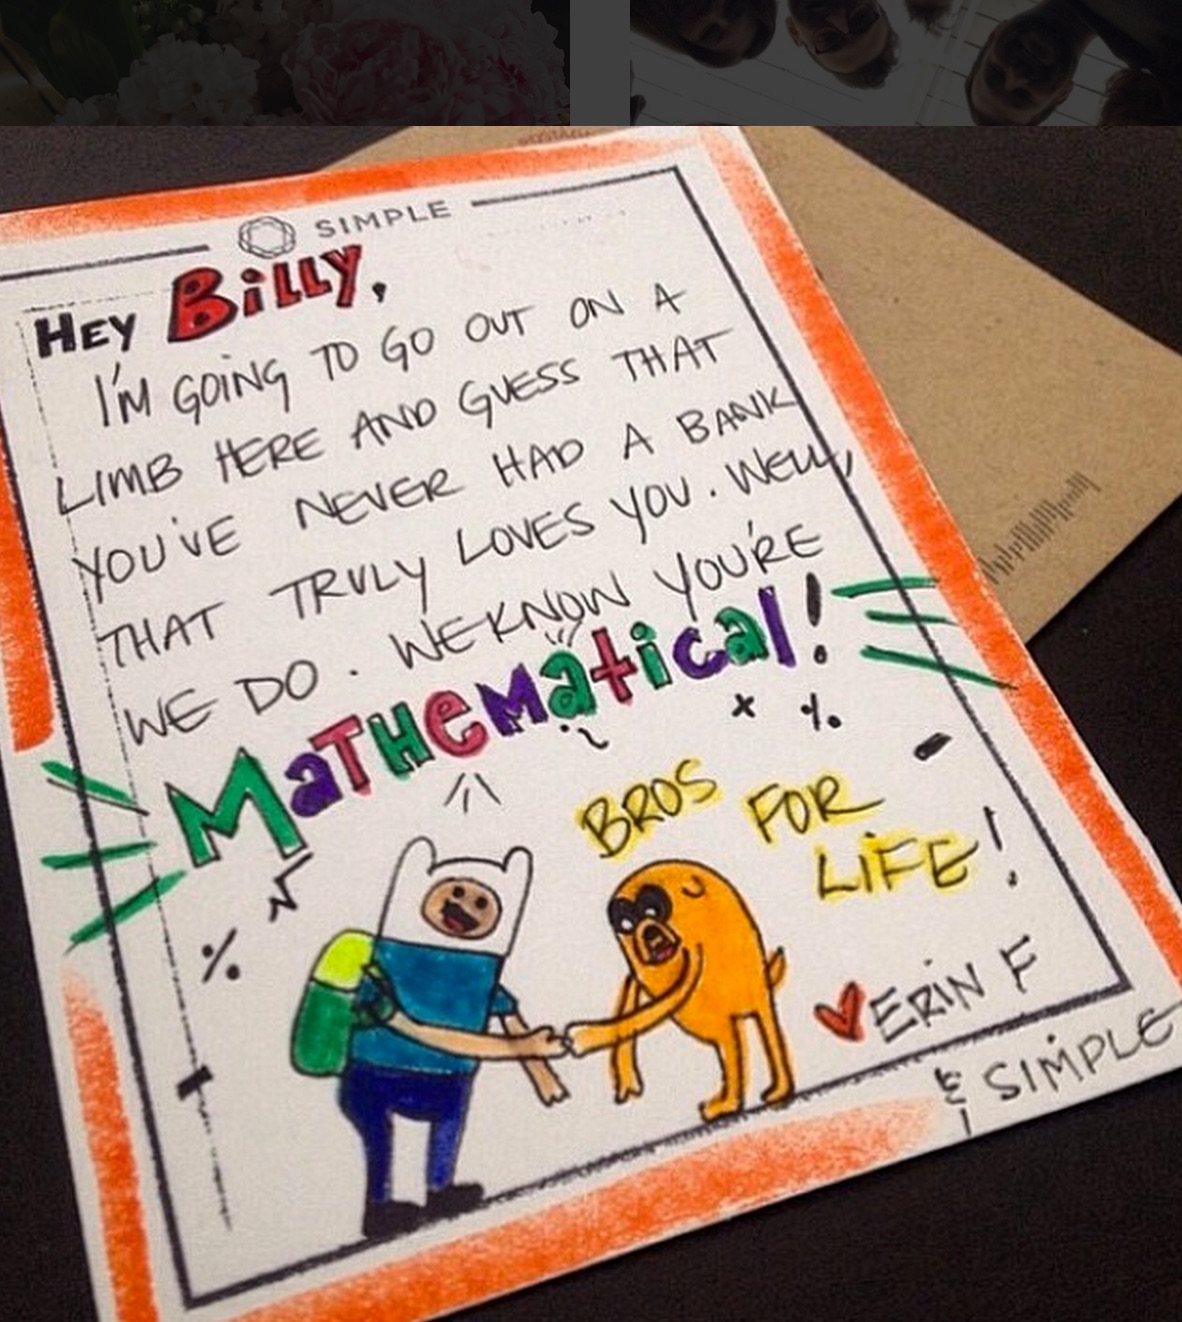 SIMPLE
HEY BiLLY,
I'M GOiNG TO GO OUT ON A
LIMB HERE AND GUESS THAT
YOU'VE NEVER HAD A BANK
THAT TRULY LOVES YOU. WELL,
WE DO. WE KNOW YOU'RE
MaTHeMaticaL!
BROS FOR
LiFE!
ERiN F
& SiMPLE